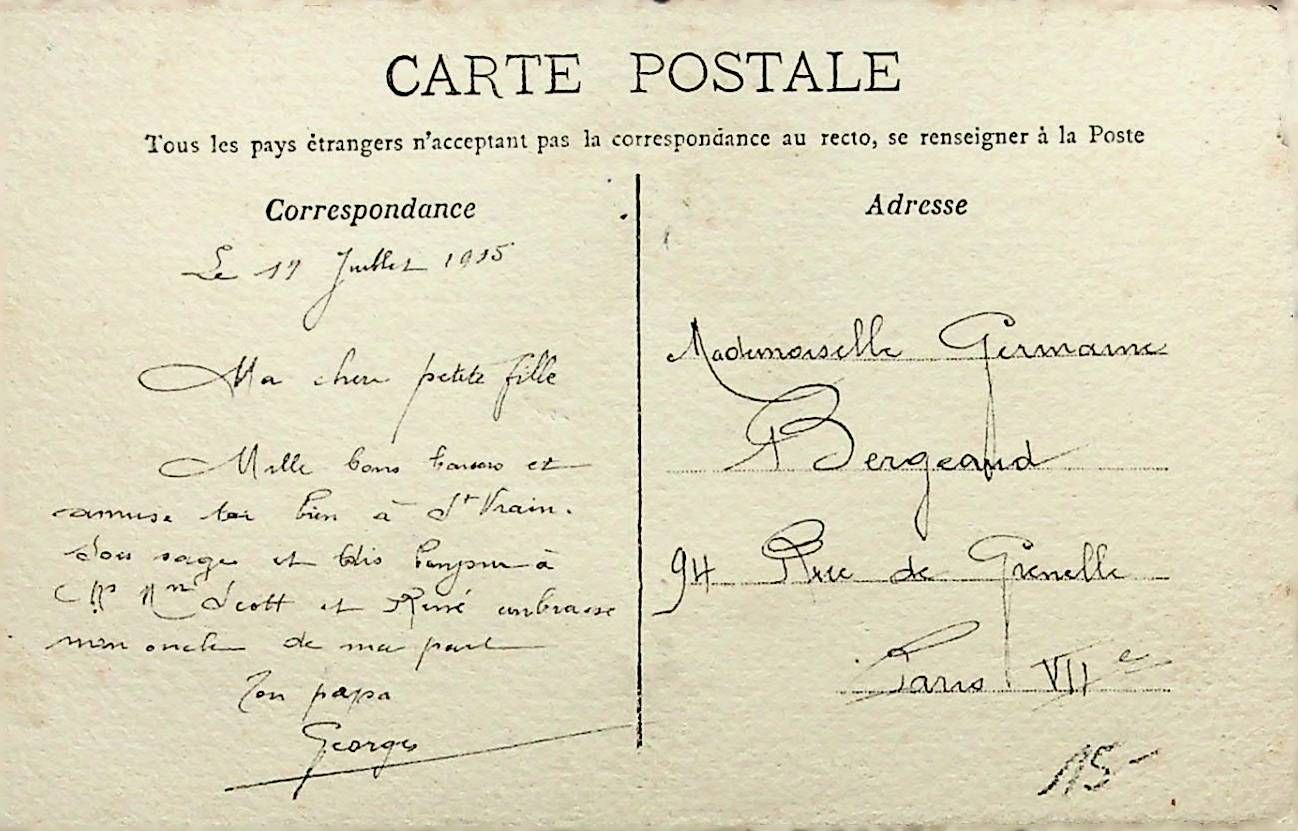 CARTE POSTALE
Tous les pays étrangers n'acceptant pas la correspondance au recto, se renseigner à la Poste
Correspondance
Le 17 Juillet 1915
Ma chere petite fille
Mille bons baisers et
camuse toi bien à St Vrain.
Sois sage et dis bonjour à
Mme Scott et René embrasse
mon oncle de ma part
Ton papa
Georges
Adresse
Mademoiselle Germaine
Bergeaud
94 Rue de Grenelle
Paris VIIe
15-